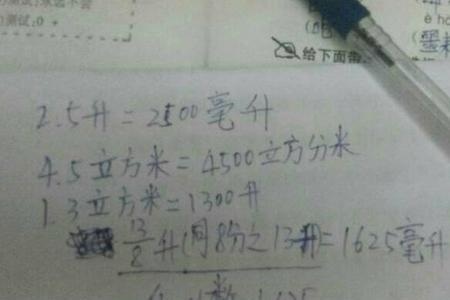 测试:0
给下面带
2.5升=2500毫升
4.5立方米=4500立方分米
1.3立方米=1300升
13/8升(同8分之13升)=1625毫升